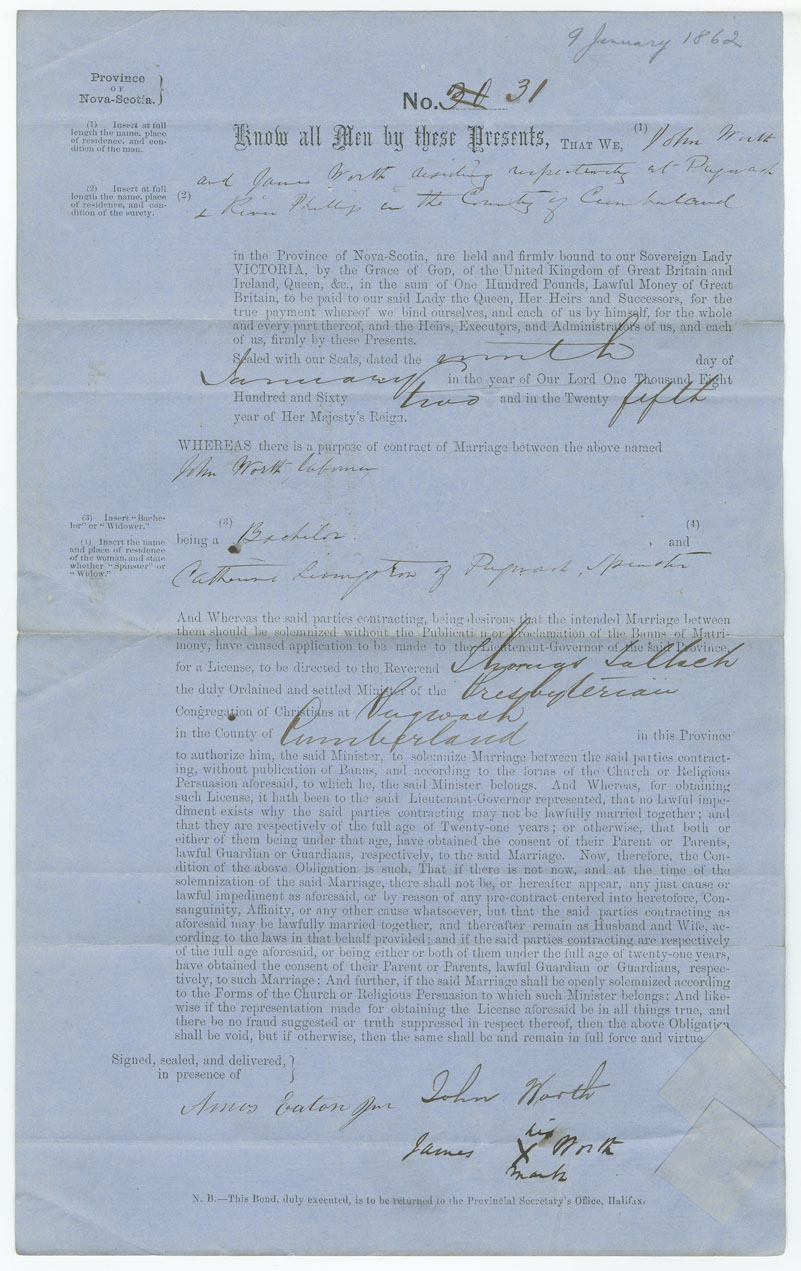 9 January 1862
Province
OF
Nova-Scotia.
No. 30 31
(1) Insert at full
length the name, place
of residence, and con-
dition of the man.
Know all Men by these Presents, THAT WE, (1) John Worth
(2) Insert at full
length the name, place
of residence, and con-
dition of the surety.
and James Worth residing respectively at Pugwash
(2) & River Phillip in the County of Cumberland
in the Province of Nova-Scotia, are held and firmly bound to our Sovereign Lady
VICTORIA, by the Grace of GOD, of the United Kingdom of Great Britain and
Ireland, Queen, &c., in the sum of One Hundred Pounds, Lawful Money of Great
Britain, to be paid to our said Lady the Queen, Her Heirs and Successors, for the
true payment whereof we bind ourselves, and each of us by himself, for the whole
and every part thereof, and the Heirs, Executors, and Administrators of us, and each
of us, firmly by these Presents.
Sealed with our Seals, dated the ninth day of
January in the year of Our Lord One Thousand Eight
Hundred and Sixty two and in the Twenty fifth
year of Her Majesty's Reign.
WHEREAS there is a purpose of contract of Marriage between the above named
John Worth, labourer
(3) Insert "Bache-
lor" or "Widower."
(4) Insert the name
and place of residence
of the woman, and state
whether "Spinster" or
"Widow."
being a (3) Bachelor, and (4)
Catherine Livingston of Pugwash, Spinster
And Whereas the said parties contracting, being desirous that the intended Marriage between
them should be solemnized without the Publication or Proclamation of the Banns of Matri-
mony, have caused application to be made to the Lieutenant-Governor of the said Province,
for a License, to be directed to the Reverend Thomas
the duly Ordained and settled Minister of the Presbyterian
Congregation of Christians at Pugwash
in the County of Cumberland in this Province
to authorize him, the said Minister, to solemnize Marriage between the said parties contract-
ing, without publication of Banns, and according to the forms of the Church or Religious
Persuasion aforesaid, to which he, the said Minister belongs. And Whereas, for obtaining
such License, it hath been to the said Lieutenant-Governor represented, that no lawful impe-
diment exists why the said parties contracting may not be lawfully married together; and
that they are respectively of the full age of Twenty-one years; or otherwise, that both or
either of them being under that age, have obtained the consent of their Parent or Parents,
lawful Guardian or Guardians, respectively, to the said Marriage. Now, therefore, the Con-
dition of the above Obligation is such, That if there is not now, and at the time of the
solemnization of the said Marriage, there shall not be, or hereafter appear, any just cause or
lawful impediment as aforesaid, or by reason of any pre-contract entered into heretofore, Con-
sanguinity, Affinity, or any other cause whatsoever, but that the said parties contracting as
aforesaid may be lawfully married together, and thereafter remain as Husband and Wife, ac-
cording to the laws in that behalf provided; and if the said parties contracting are respectively
of the full age aforesaid, or being either or both of them under the full age of twenty-one years,
have obtained the consent of their Parent or Parents, lawful Guardian or Guardians, respec-
tively, to such Marriage: And further, if the said Marriage shall be openly solemnized according
to the Forms of the Church or Religious Persuasion to which such Minister belongs: And like-
wise if the representation made for obtaining the License aforesaid be in all things true, and
there be no fraud suggested or truth suppressed in respect thereof, then the above Obligation
shall be void, but if otherwise, then the same shall be and remain in full force and virtue.
Signed, sealed, and delivered,
in presence of
Amos Eaton Jnr John Worth
his
James X Worth
mark
N. B.—This Bond, duly executed, is to be returned to the Provincial Secretary's Office, Halifax.